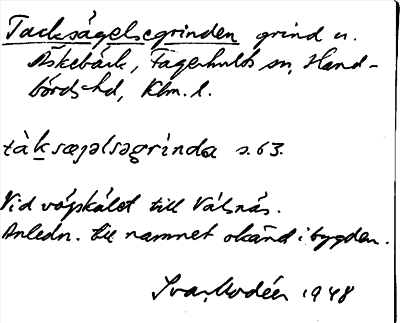 Tacksägelsegrinden grind n.
Äskebäck, Fagerhults sn, Hand-
börds hd, Klm. l.
tàksæjəlsəgrìnda s. 63.
Vid vägskälet till Välsnäs.
Anledn. till namnet okänd i bygden.
Ivar Modéer 1948